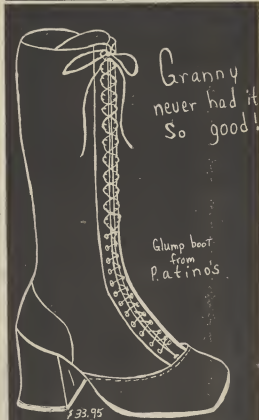 Granny
never had it
so good!
Glump boot
from
Patino's
$33.95